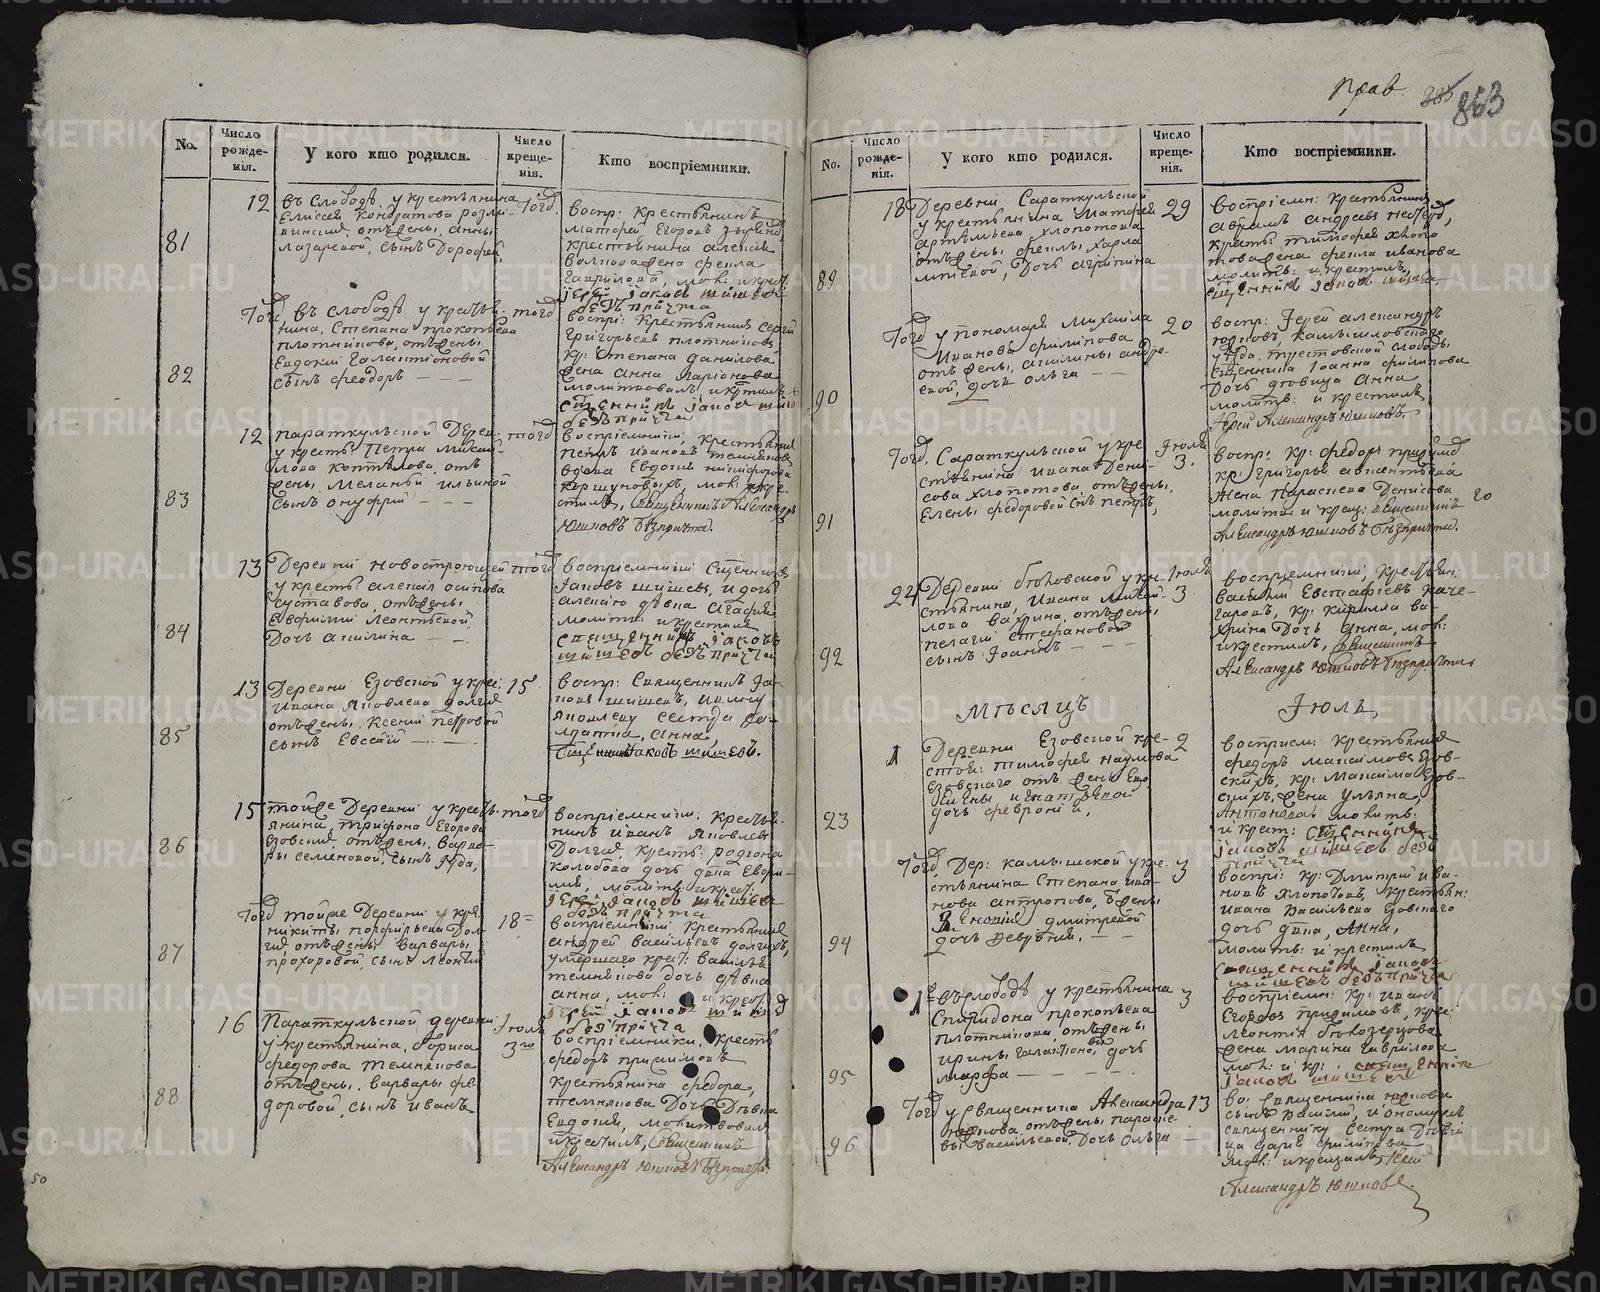 прав.
385 863
No.
Число рожде- нія.
У кого кто родился.
Число креще- нія.
Кто воспріемники.
81
12
въ Слободѣ, у крестьянина
Елисея Кондратова
отъ жены, анны
лазаревой, сынъ Дорофей,
тогд
воспр: крестьянинъ
Матфей Егоровъ
крестьянина алексея
жена фекла
гаврилова, мол: и крест:
іерей Іаковъ шишевъ
безъ причта
82
тогд
въ слободѣ у кресть-
нина, Степана прокопьева
плотникова, отъ жены
Евдокии Галактионовой
сынъ феодоръ
тогд
воспрі: Крестьянинъ Сергій
Григорьевъ плотниковъ
кр: степана данилова
жена анна Ларіонова
молитвовалъ и крстилъ
сщенникъ Іаковъ шиш
безъ причта
83
12
параткульской Дерев:
у кресть: Петра Михай-
лова коптѣлова, отъ
жены, Меланьи ильиной
сынъ онуфрий
тогд
воспріемники, крестьянинъ
петръ ивановъ темняковъ
вдова Евдокия никифорова
коршуновыхъ, мол: и кре-
стилъ, священникъ Александръ
Юшковъ безъ причта.
84
13
Деревни новостроющей
у кресть: алексѣя осипова
суставова, отъ жены
Евфимии Леонтьевой
Дочь акилина
тогд
воспріемники Сщенникъ
Іаковъ шишевъ, и дочь
алексѣю дѣвка агафия
молити: и крестилъ
священникъ Іаковъ
шишевъ безъ причта
85
13
Деревни Езовской у крес:
Ивана Яковлева долгих
отъ жены, Ксении петровой
сынъ Евсевий
15
воспр: Священникъ Іа-
ковъ шишевъ, ивану
яковлеву сестра
анна,
Сщенникъ Іаковъ шишевъ.
86
15
тойже Деревни у кресть-
янина, трифона Егорова
Езовских, отъ жены, Варва-
ры семеновой, сынъ Іуда,
тогд
воспріемники: кресть-
нинъ иванъ яковлевъ
Долгих, кресть: родиона
колобова дочь дѣвка Евфи-
мия, молитв: и крест:
іерей Іаковъ шишевъ
безъ причта
87
тогд
тойже Деревни у кре:
никиты порфирьева Дол-
гих, отъ жены Варвары
прохоровой, сынъ леонтий
18
воспріемники крестьянинъ
андрей васильевъ долгихъ,
умершаго крест: василья
темнякова дочь дѣвка
анна, мол: и крест:
іерей Іаковъ шишевъ
безъ причта
88
16
Параткульской деревни:
у крестьянина, бориса
федорова темнякова
отъ жены, варвары фе-
доровой, сынъ иванъ
Іюля
3го
воспріемники, кресть:
федоръ
крестьянина федора
темнякова Дочь Дѣвка
Евдокия, молитвовалъ
и крестилъ, священникъ
Александръ Юшковъ безъ причта.
50
No.
Число рожде- нія.
У кого кто родился.
Число креще- нія.
Кто воспріемники.
89
18
Деревни Сараткульской
у крестьянина Матфея
артемьева хлопотова
отъ жены, феклы харла
мпіевой, Дочь агрипина
29
воспріемн: крестьянинъ
абрамъ андреевъ
кресть: тимофея хлопо
това жена фекла иванова
молитв: и крестилъ,
сщенникъ Іаковъ шишевъ
90
тогд
у пономаря Михаила
Иванова филипова
отъ жены, акилины андре-
евой, дочь ольга
20
воспр: Іерей александръ
юшковъ, Камышловскаго
уѣзда
сщенника Іоанна филипова
Дочь дѣвица Анна
молитв: и крестилъ,
Іерей Александръ Юшковъ.
91
тогд
Сараткульской у кре
стьянина Ивана Дени-
сова хлопотова, отъ жены,
Елены федоровой снъ петръ,
Іюля
3.
воспр: кр: федоръ
кр: Григорья
жена параскева Денисова
молитв: и крещ: священникъ
Александръ Юшковъ безъ причта.
20
92
24
Деревни бѣловской у кре-
стьянина, Ивана Михай-
лова вахрина, отъ жены,
пелагии стефановой
сынъ Іоаннъ
Іюля
3.
воспріемники, Крестьян:
василий Евстафіевъ каче-
гаровъ, кр: кирилла ва-
хрина Дочь анна, мол:
и крестилъ, священникъ
Александръ Юшковъ безъ причта
Мѣсяцъ Іюль,
23
1
Деревни Езовской кре-
стьян: тимофея наумова
Езовскаго отъ жены его
игнатьевой
дочь феврония,
2
восприем: крестьянинъ
федоръ максимовъ Езов-
скихъ, кр: максима Езов-
скихъ, жена ульяна,
антонова: молитв:
и крест: сщенникъ
Іаковъ шишевъ безъ
причта
94
тогд
Дер: камышской у кре:
стьянина Степана ива-
нова антропова, жены
дмитревой
дочь Февруния,
3
воспрі: кр: Дмитрий ива-
новъ хлопотовъ, крестьян:
ивана Васильева Езовскаго
дочь дѣвка, Анна,
молитв: и крестилъ
священникъ Іаковъ
шишевъ безъ причта
95
1
въ слободѣ у крестьянина
Спиридона прокопьева
плотникова, отъ жены
ирины галактионовой, дочь
марфа
3
воспріемн: кр: иванъ
Егоровъ кре:
леонтия бѣлозерцова
жена марина гаврилова
мол: и кр: священникъ
Іаковъ шишевъ
96
тогд
у священника Александра
юшкова, отъ жены, параске-
вы Васильевой, Дочь ольга
13
во: священника юшкова
сынъ василий, и ономуже
священнику сестра Дѣви
ца дарья филипова
мол: и крещалъ, Іерей
Александръ Юшковъ.
METRIKI.GASO-URAL.RU